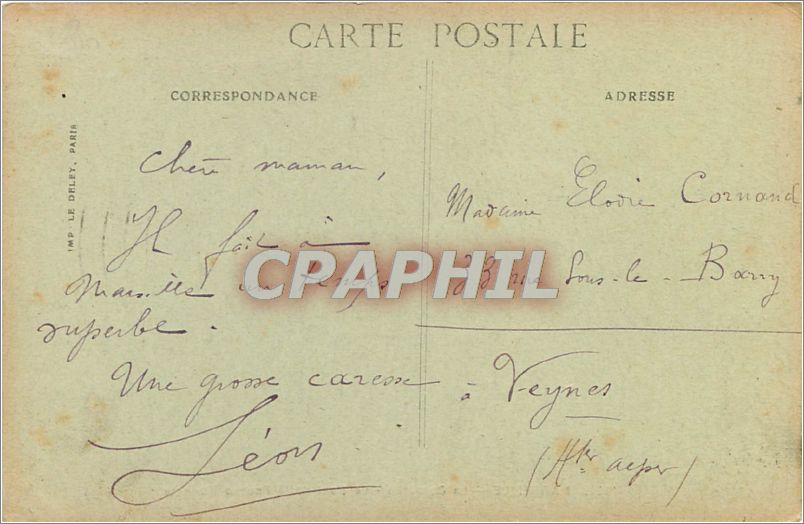 CARTE POSTALE
CORRESPONDANCE
ADRESSE
IMP. LE DELEY, PARIS
Chère maman,
Il fait à
Marseille un temps
superbe.
Une grosse caresse
Léon
Madame Elodie Cornand
rue Sous-le-Barry
à Veynes
(Htes alpes)
CPAPHIL